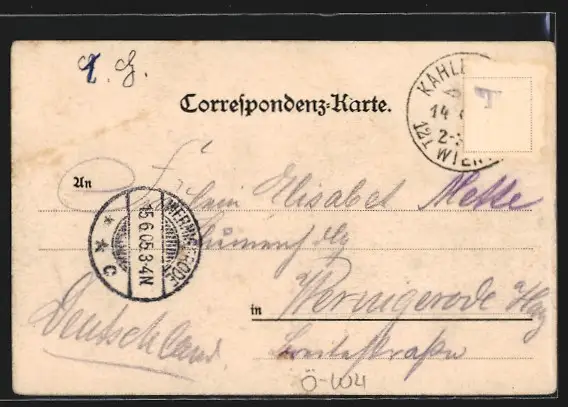 Correspondenz-Karte.
KAHLE
14
2-3
12T WIEN
An Fräulein Elisabet Mette
WERNIGERODE
15.6.05.3-4N
* * C
in Wernigerode Harz
Deutschland
Breitestraße
Ö-W4